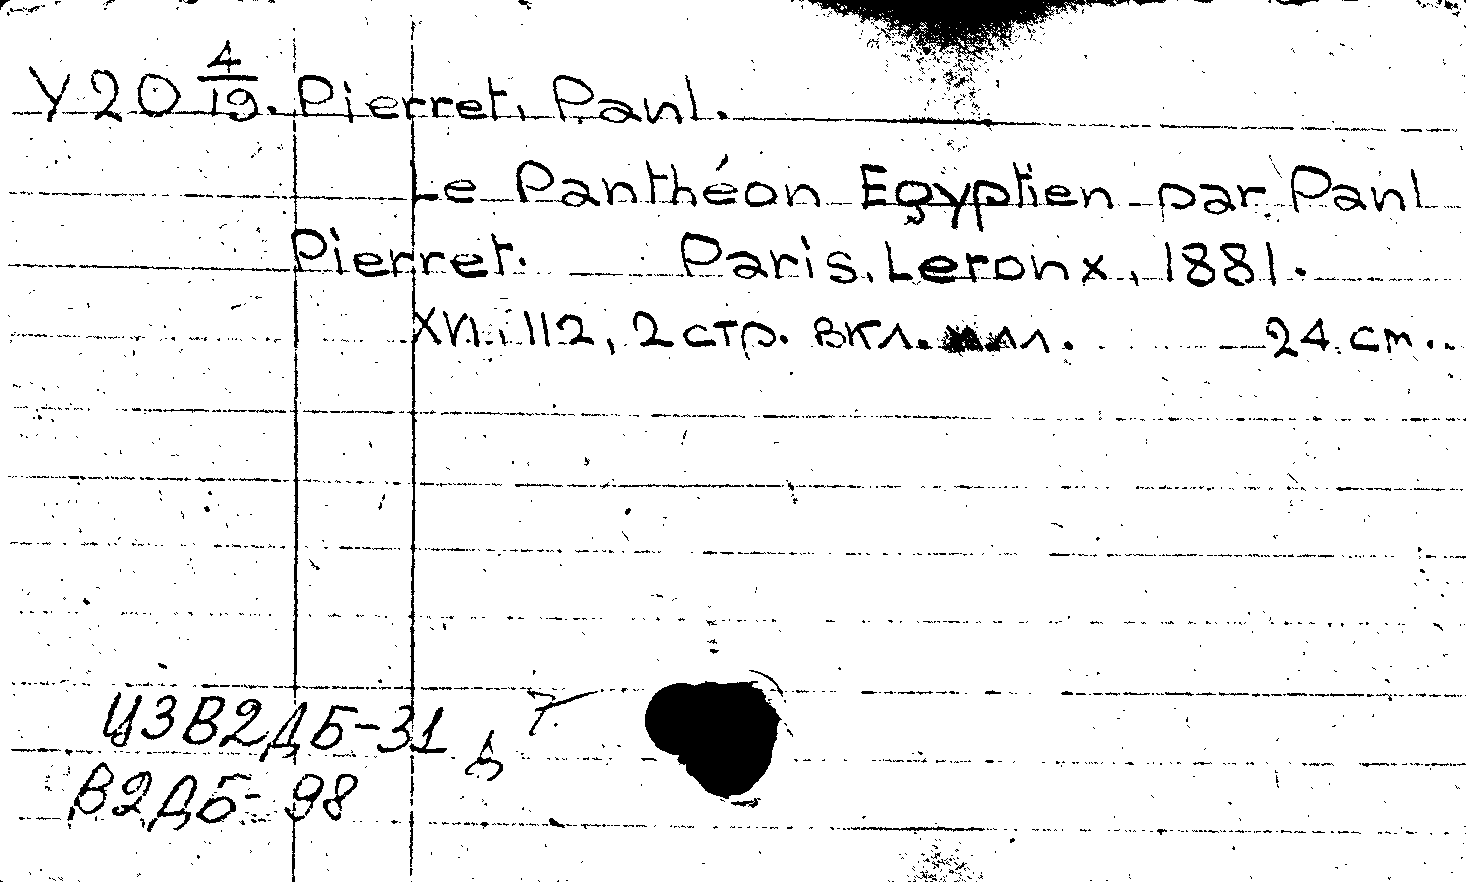 У20 4/19. Pierret, Paul.
Le Panthéon Egyptien par Paul
Pierret. Paris, Leroux, 1881.
XVI, 112, 2 стр. вкл. илл. 24 см.
ЦЗВ2ДБ-31
В2ДБ-98